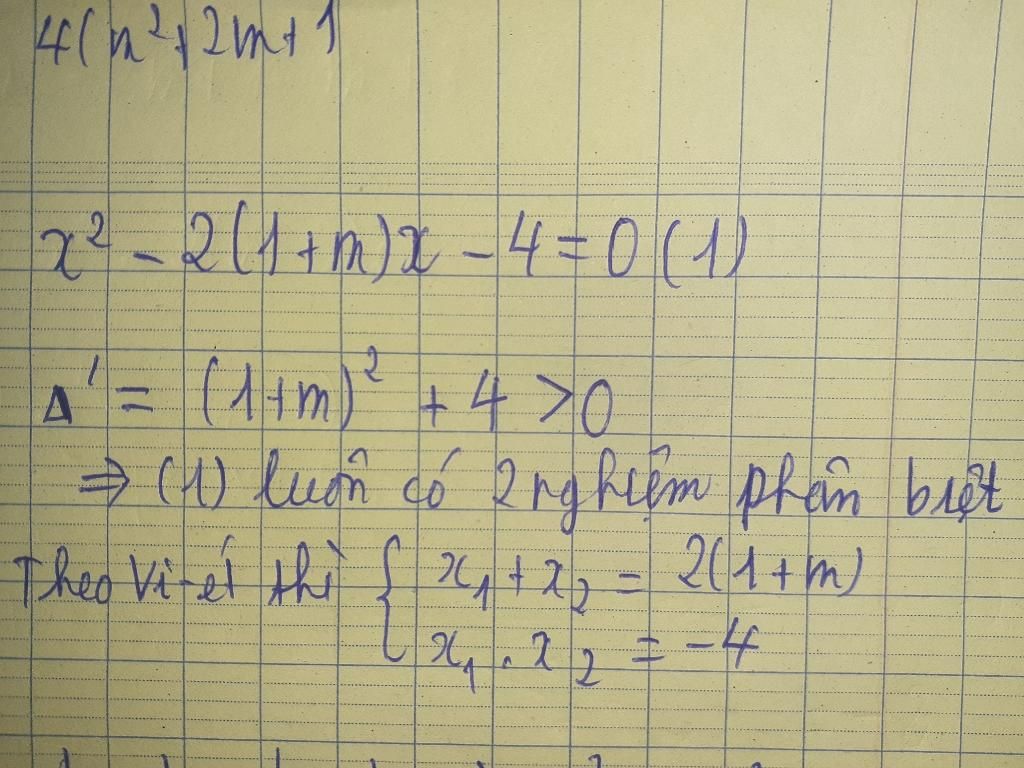 4(m²+2m+1
x² - 2(1+m)x - 4 = 0 (1)
Δ' = (1+m)² + 4 > 0
⇒ (1) luôn có 2 nghiệm phân biệt
Theo Vi-ét thì { x₁ + x₂ = 2(1+m)
x₁ . x₂ = -4